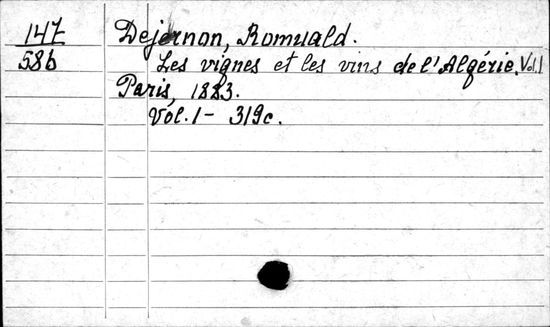 147 Dejernon, Romuald.
58b Les vignes et les vins de l'Algérie. Vol. 1
Paris, 1883.
Vol. 1 - 319c.